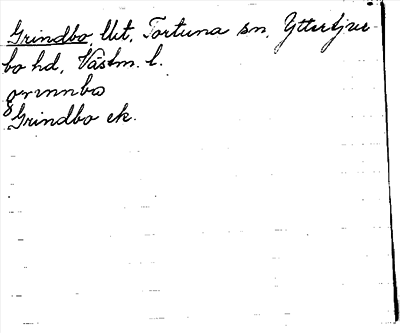 Grindbo, Ut, Tortuna sn, Yttertjur-
bo hd, Västm. l.
grinnbo
Grindbo ek.